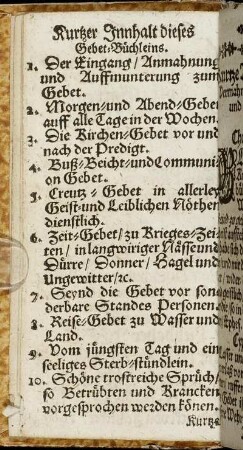 Kurtzer Innhalt dieses
Gebet-Büchleins.
1. Der Eingang / Anmahnung
und Auffmunterung zum
Gebet.
2. Morgen-und Abend-Gebet
auff alle Tage in der Wochen.
3. Die Kirchen-Gebet vor und
nach der Predigt.
4. Buß-Beicht-und Communi
on Gebet.
5. Creutz-Gebet in allerley
Geist-und Leiblichen Nöthen
dienstlich.
6. Zeit-Gebet / zu Krieges-Zei-
ten / in langwiriger Nässe und
Dürre / Donner / Hagel und
Ungewitter / ꝛc.
7. Seynd die Gebet vor son
derbare Standes Personen.
8. Reise-Gebet zu Wasser und
Land.
9. Vom jüngsten Tag und ein
seeliges Sterb-stündlein.
10. Schöne trostreiche Sprüch /
so Betrübten und Krancken
vorgesprochen werden könen.
Kurtze